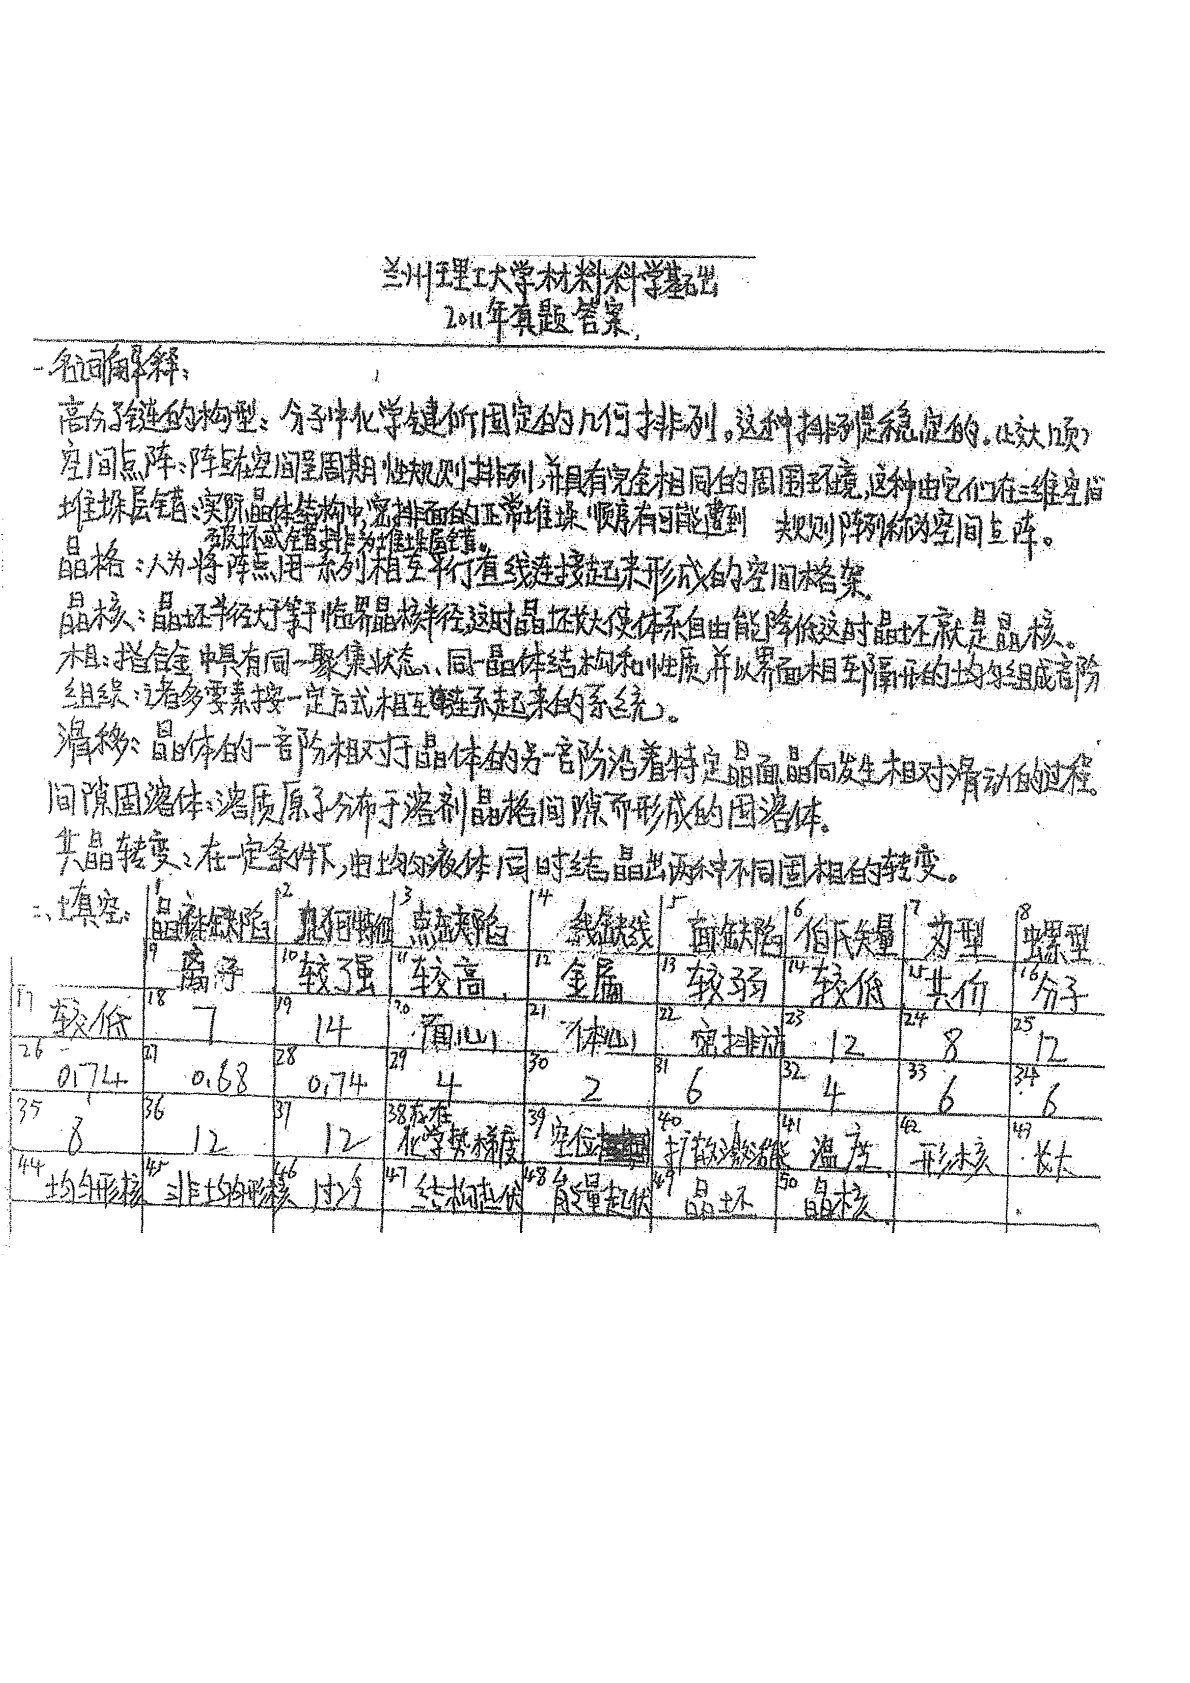 兰州理工大学材料科学基础
2011年真题答案.
一.名词解释:
高分子链的构型:分子中化学键所固定的几何排列。这种排列是稳定的。
空间点阵:阵点在空间呈周期性规则排列,并具有完全相同的周围环境,这种由它们在三维空间
规则阵列称为空间点阵。
堆垛层错:实际晶体结构中,密排面的正常堆垛顺序有可能遭到
破坏或错排,称为堆垛层错。
晶格:人为将阵点用一系列相互平行直线连接起来形成的空间格架.
晶核:晶坯半径大于等于临界晶核半径,这时晶坯长大使体系自由能降低这时晶坯就是晶核。
相:指合金中具有同一聚集状态、同一晶体结构和性质并以界面相互隔开的均匀组成部
组织:诸多要素按一定方式相互连系起来的系统。
滑移:晶体的一部份相对于晶体的另一部份沿着特定晶面、晶向发生相对滑动的过程。
间隙固溶体:溶质原子分布于溶剂晶格间隙而形成的固溶体。
共晶转变:在一定条件下,由均匀液体同时结晶出两种不同固相的转变。
二、填空:
1 晶体缺陷 2 几何特征 3 点缺陷 4 线缺线 5 面缺陷 6 伯氏矢量 7 刃型 8 螺型
9 离子 10 较强 11 较高 12 金属 13 较弱 14 较低 15 共价 16 分子
17 较低 18 7 19 14 20 面心 21 体心 22 密排六 23 12 24 8 25 12
26 0.74 27 0.68 28 0.74 29 4 30 2 31 6 32 4 33 6 34 6
35 8 36 12 37 12 38 存在化学势梯度 39 空位 40 扩散激活能 41 温度 42 形核 43 长大
44 均匀形核 45 非均匀形核 46 过冷 47 结构起伏 48 能量起伏 49 晶坯 50 晶核